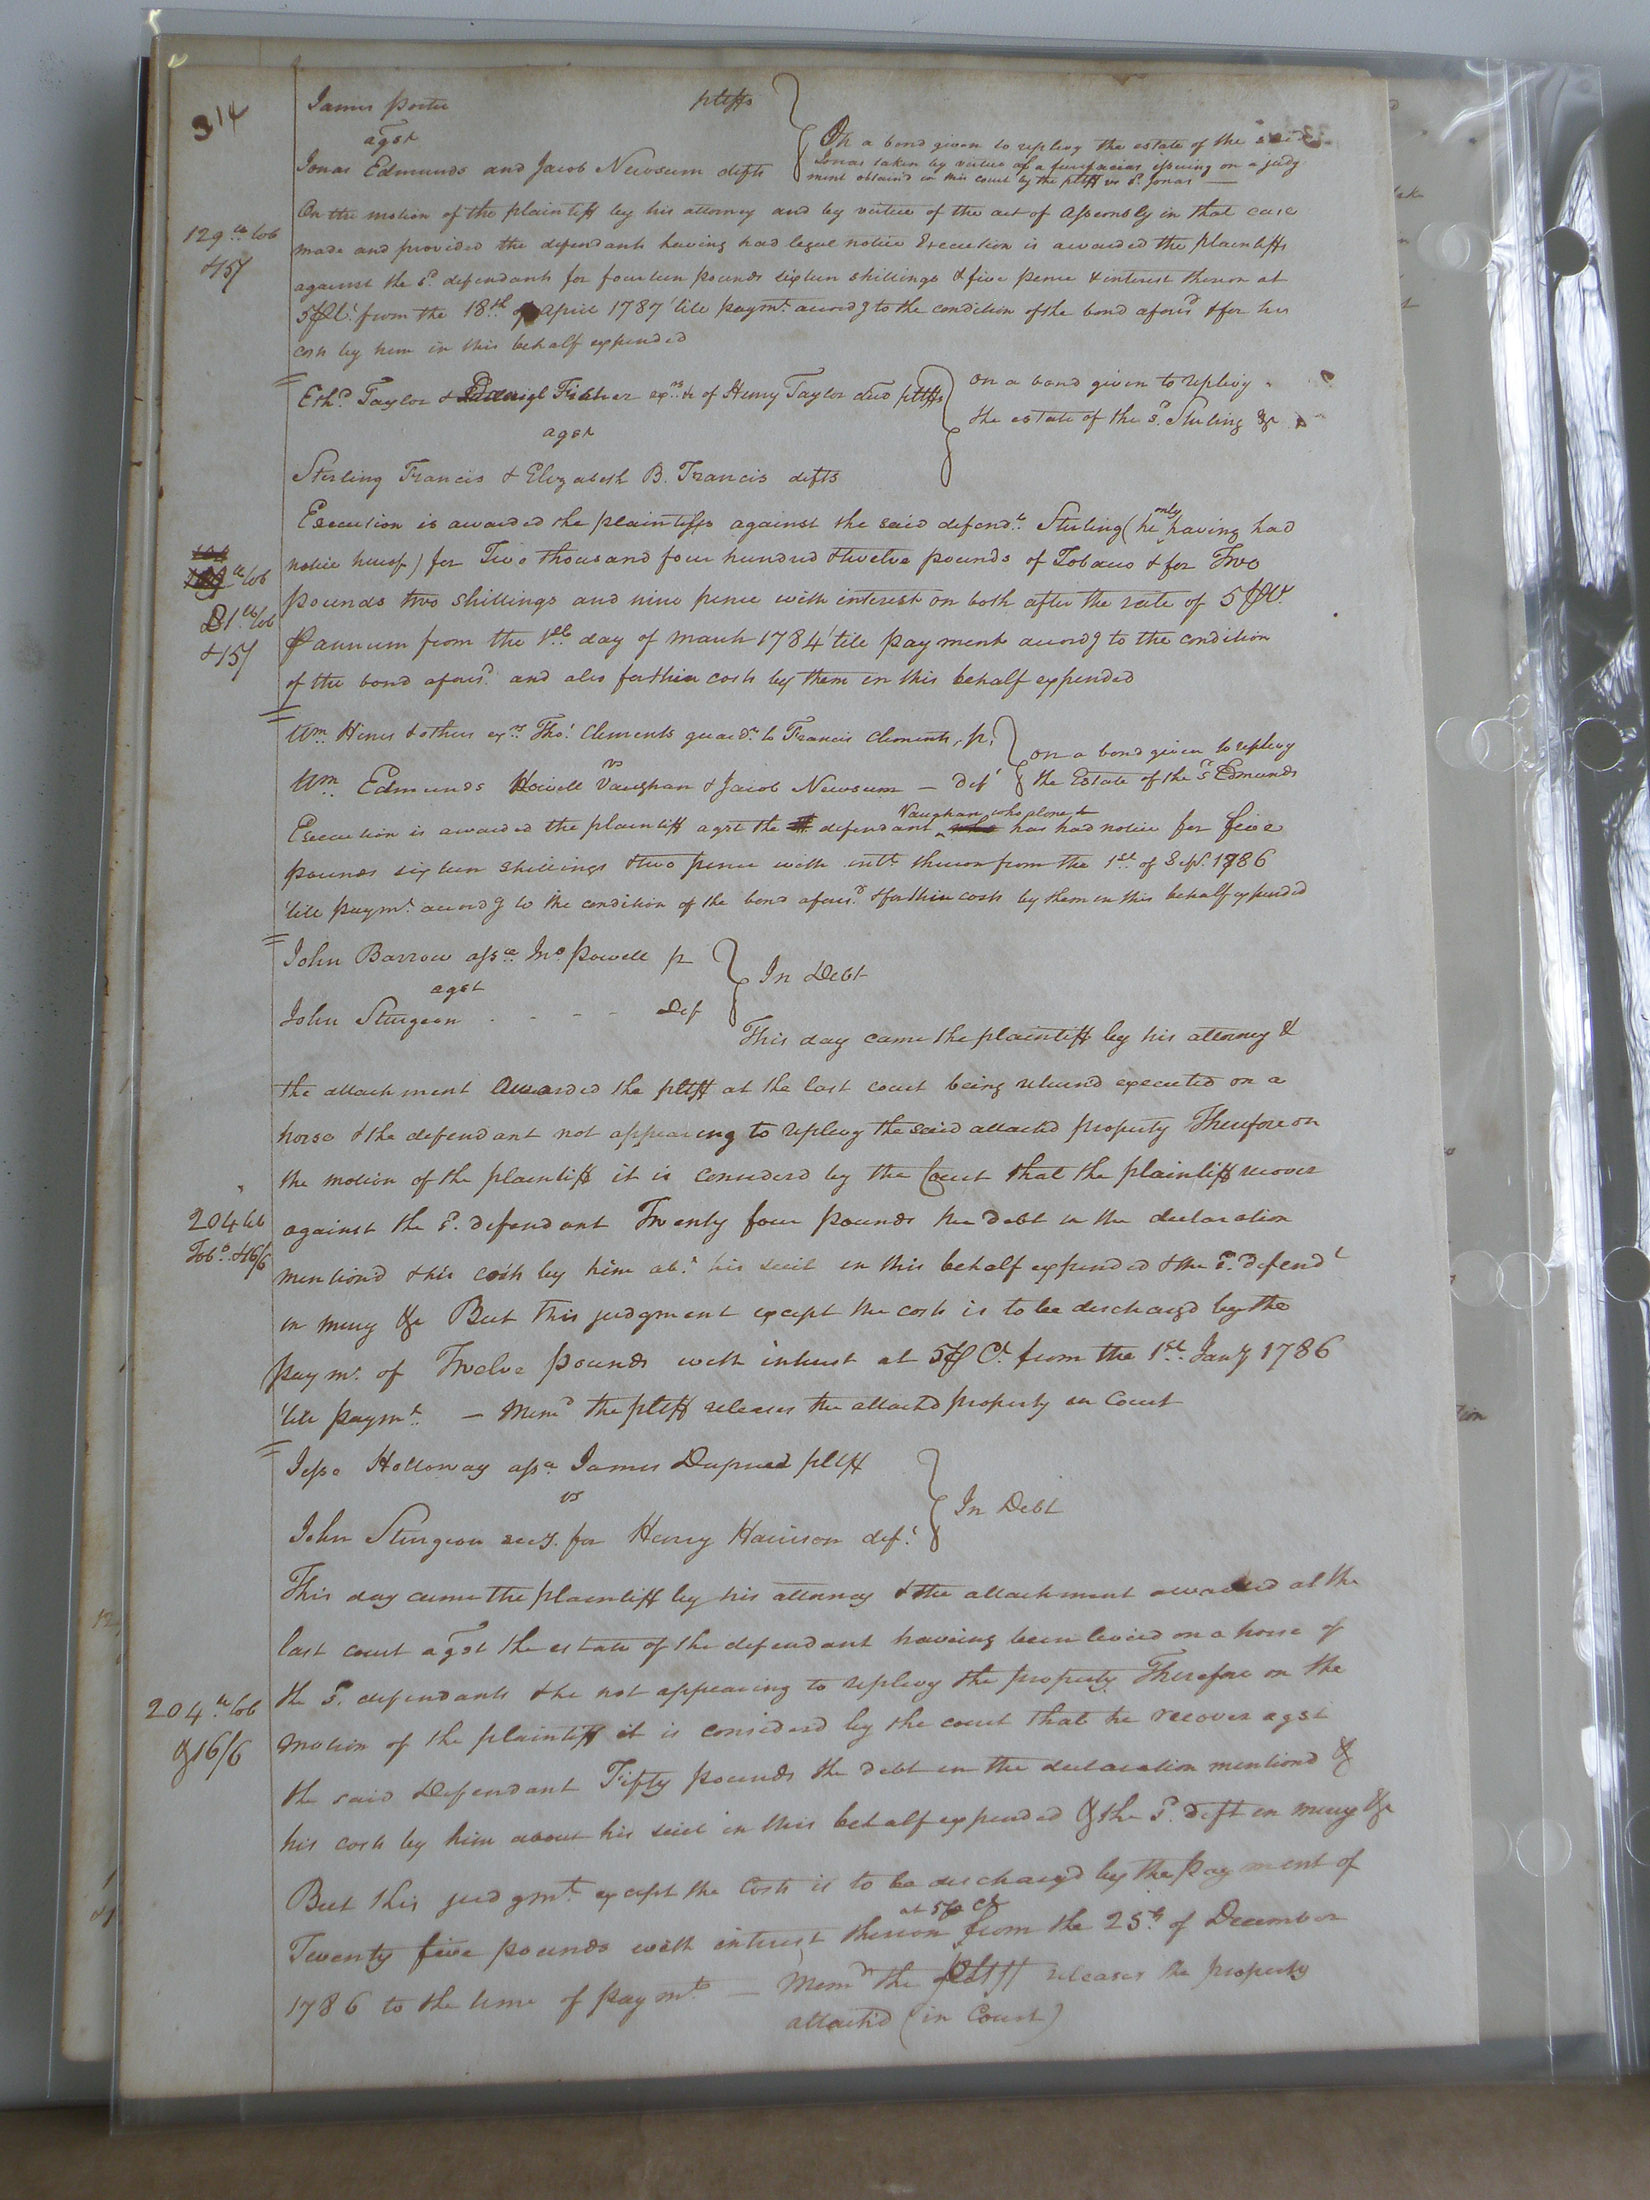 314
James Porter pltffs
agst
Jonas Edmunds and Jacob Newsum defts
On a bond given to replevy the estate of the said
Jonas taken by virtue of a fierifacias issuing on a judg
ment obtaind in this court by the pltff vs sd. Jonas —
On the motion of the plaintiff by his attorney and by virtue of the act of Assembly in that case
made and provided the defendants having had legal notice Execution is awarded the plaintiffs
129 lb tob
&15/
against the sd. defendants for fourteen pounds sixteen shillings & five pence & interest thereon at
5 P Ct. from the 18th of April 1787 'till paymt. accordg to the condition of the bond aforesd & for his
costs by him in this behalf expended
Ethd. Taylor & Daniel Fisher exrs. &c of Henry Taylor decd pltffs
agst
Sterling Francis & Elizabeth B. Francis defts
on a bond given to replevy
the estate of the sd. Sterling &c
Execution is awarded the plaintiffs against the said defendts. Sterling (he only having had
notice hereof) for Two thousand four hundred & twelve pounds of Tobacco & for Two
pounds two shillings and nine pence with interest on both after the rate of 5 P Ct.
81 lb tob
&15/
P annum from the 1st. day of march 1784 'till payment accordg to the condition
of the bond aforesd. and also for their costs by them in this behalf expended
Wm. Hines & others exrs. Thos. Clements guardn. to Francis Clements, p.
vs
Wm. Edmunds Howell Vaughan & Jacob Newsum — Deft
on a bond given to replevy
the Estate of the sd Edmunds
Execution is awarded the plaintiff agst the defendant Vaughan who alone has had notice for five
pounds sixteen shillings & two pence with intt. thereon from the 1st. of Sept. 1786
'till paymt. accordg to the condition of the bond aforesd. & for their costs by them in this behalf expended
John Barrow assee. Jno Powell p
agst
John Sturgeon . - - - Def
In Debt
This day came the plaintiff by his attorney &
the attachment awarded the pltff at the last court being returnd executed on a
horse & the defendant not appearing to replevy the said attachd property Therefore on
the motion of the plaintiff it is considerd by the Court that the plaintiff recover
204 lb
Tobo. &16/6
against the sd. defendant Twenty four pounds the debt in the declaration
mentiond & his costs by him abt. his suit in this behalf expended & the sd. defendt
in mercy &c But this judgment except the costs is to be discharg'd by the
paymt. of Twelve pounds with interest at 5 P Ct. from the 1st. Jany 1786
'till paymt. — Memd the pltff releases the attach'd property in Court
Jesse Holloway assee James Dupree pltff
vs
John Sturgeon secy. for Henry Harrison deft.
In Debt
This day came the plaintiff by his attorney & the attachment awarded at the
last court agst the estate of the defendant having been levied on a horse of
the sd. defendants & he not appearing to replevy the property Therefore on the
204 lb tob
& 16/6
motion of the plaintiff it is considerd by the court that he recover agst
the said Defendant Fifty pounds the debt in the declaration mentiond &
his costs by him about his suit in this behalf expended & the sd. deft in mercy &c
But this judgmt. except the Costs is to be discharg'd by the payment of
Twenty five pounds with interest thereon at 5 P Ct from the 25th of December
1786 to the time of paymt. — Memdm the pltff releases the property
attach'd (in Court)